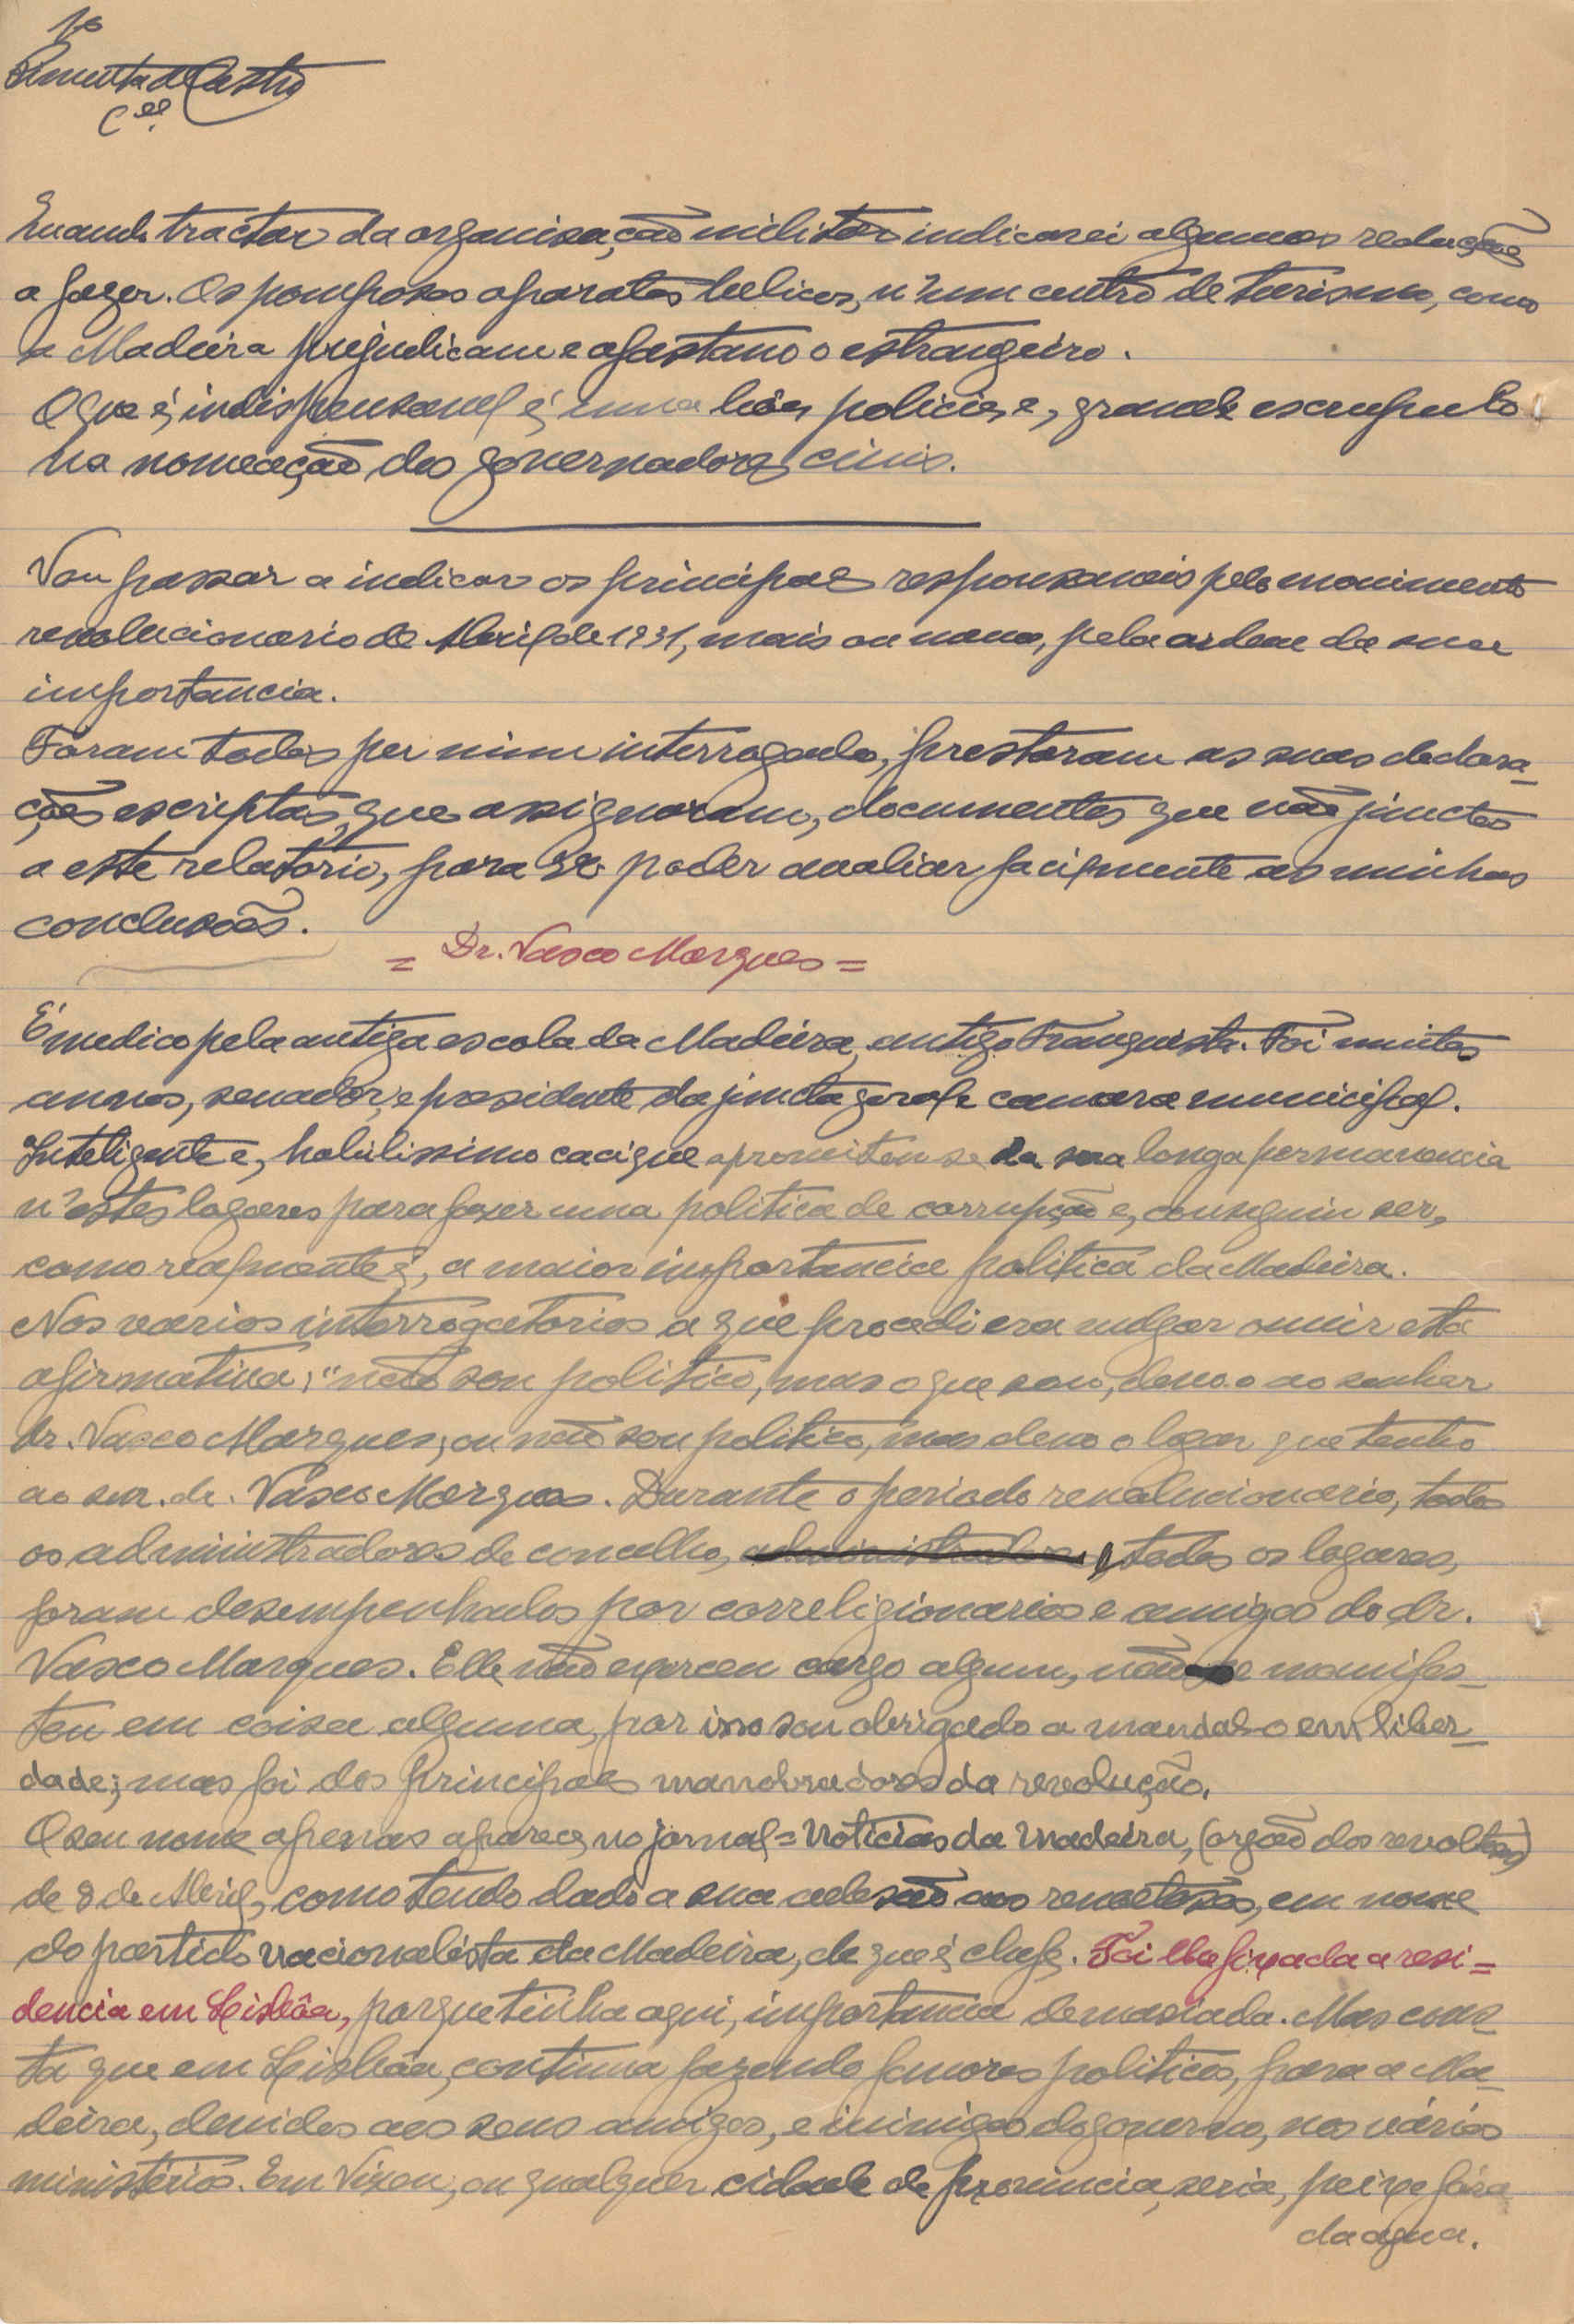 Pimenta de Castro
Cel.
Quando tractar da organisação militar indicarei algumas reduções
a fazer. Os pomposos aparatos belicos, n'um centro de turismo, como
a Madeira prejudicam e afastam o estrangeiro.
O que é, indispensavel é, uma bôa, policia, e, grande escrupulo
na nomeação dos governadores civis.
Vou passar a indicar os principaes responsaveis pelo movimento
revolucionario de Abril de 1931, mais ou menos, pela ordem da sua
importancia.
Foram todos por mim interrogados, prestaram as suas declara-
ções escriptas, que assignaram, documentos que vão junctos
a este relatório, para se poder avaliar facilmente as minhas
conclusões.
= Dr. Vasco Marques =
É medico pela antiga escola da Madeira, antigo Franquista. Foi muitos
annos, senador, e presidente da juncta geral e camara municipal.
Inteligente e, habilissimo cacique aproveitou-se da sua longa permanencia
n'estes logares para fazer uma politica de corrupção e, conseguiu ser,
como realmente é, a maior importancia politica da Madeira.
Nos varios interrogatorios a que procedi era vulgar ouvir esta
afirmativa; "não sou politico, mas o que sou, devo-o ao senhor
dr. Vasco Marques; ou não sou politico, mas devo o logar que tenho
ao snr. dr. Vasco Marques. Durante o periodo revolucionario, todos
os administradores de concelho, administradores, todos os logares,
foram desempenhados por correligionarios e amigos do dr.
Vasco Marques. Elle não exerceu cargo algum, não se manifes-
tou em coisa alguma, por isso sou obrigado a mandal-o em liber-
dade; mas foi dos principaes manobradores da revolução.
O seu nome apenas aparece, no jornal = Noticias da Madeira, (orgão dos revoltosos)
de 8 de Abril, como tendo dado a sua adesão aos revoltosos, em nome
do partido nacionalista da Madeira, de que é, chefe. Foi lhe fixada a resi=
dencia em Lisbôa, porque tinha aqui, importancia demasiada. Mas cons-
ta que em Lisbôa, continua fazendo favores politicos, para a Ma-
deira, devidos aos seus amigos, e inimigos do governo, nos vários
ministérios. Em Vizeu, ou qualquer cidade de provincia, seria, peixe fóra
da agua.